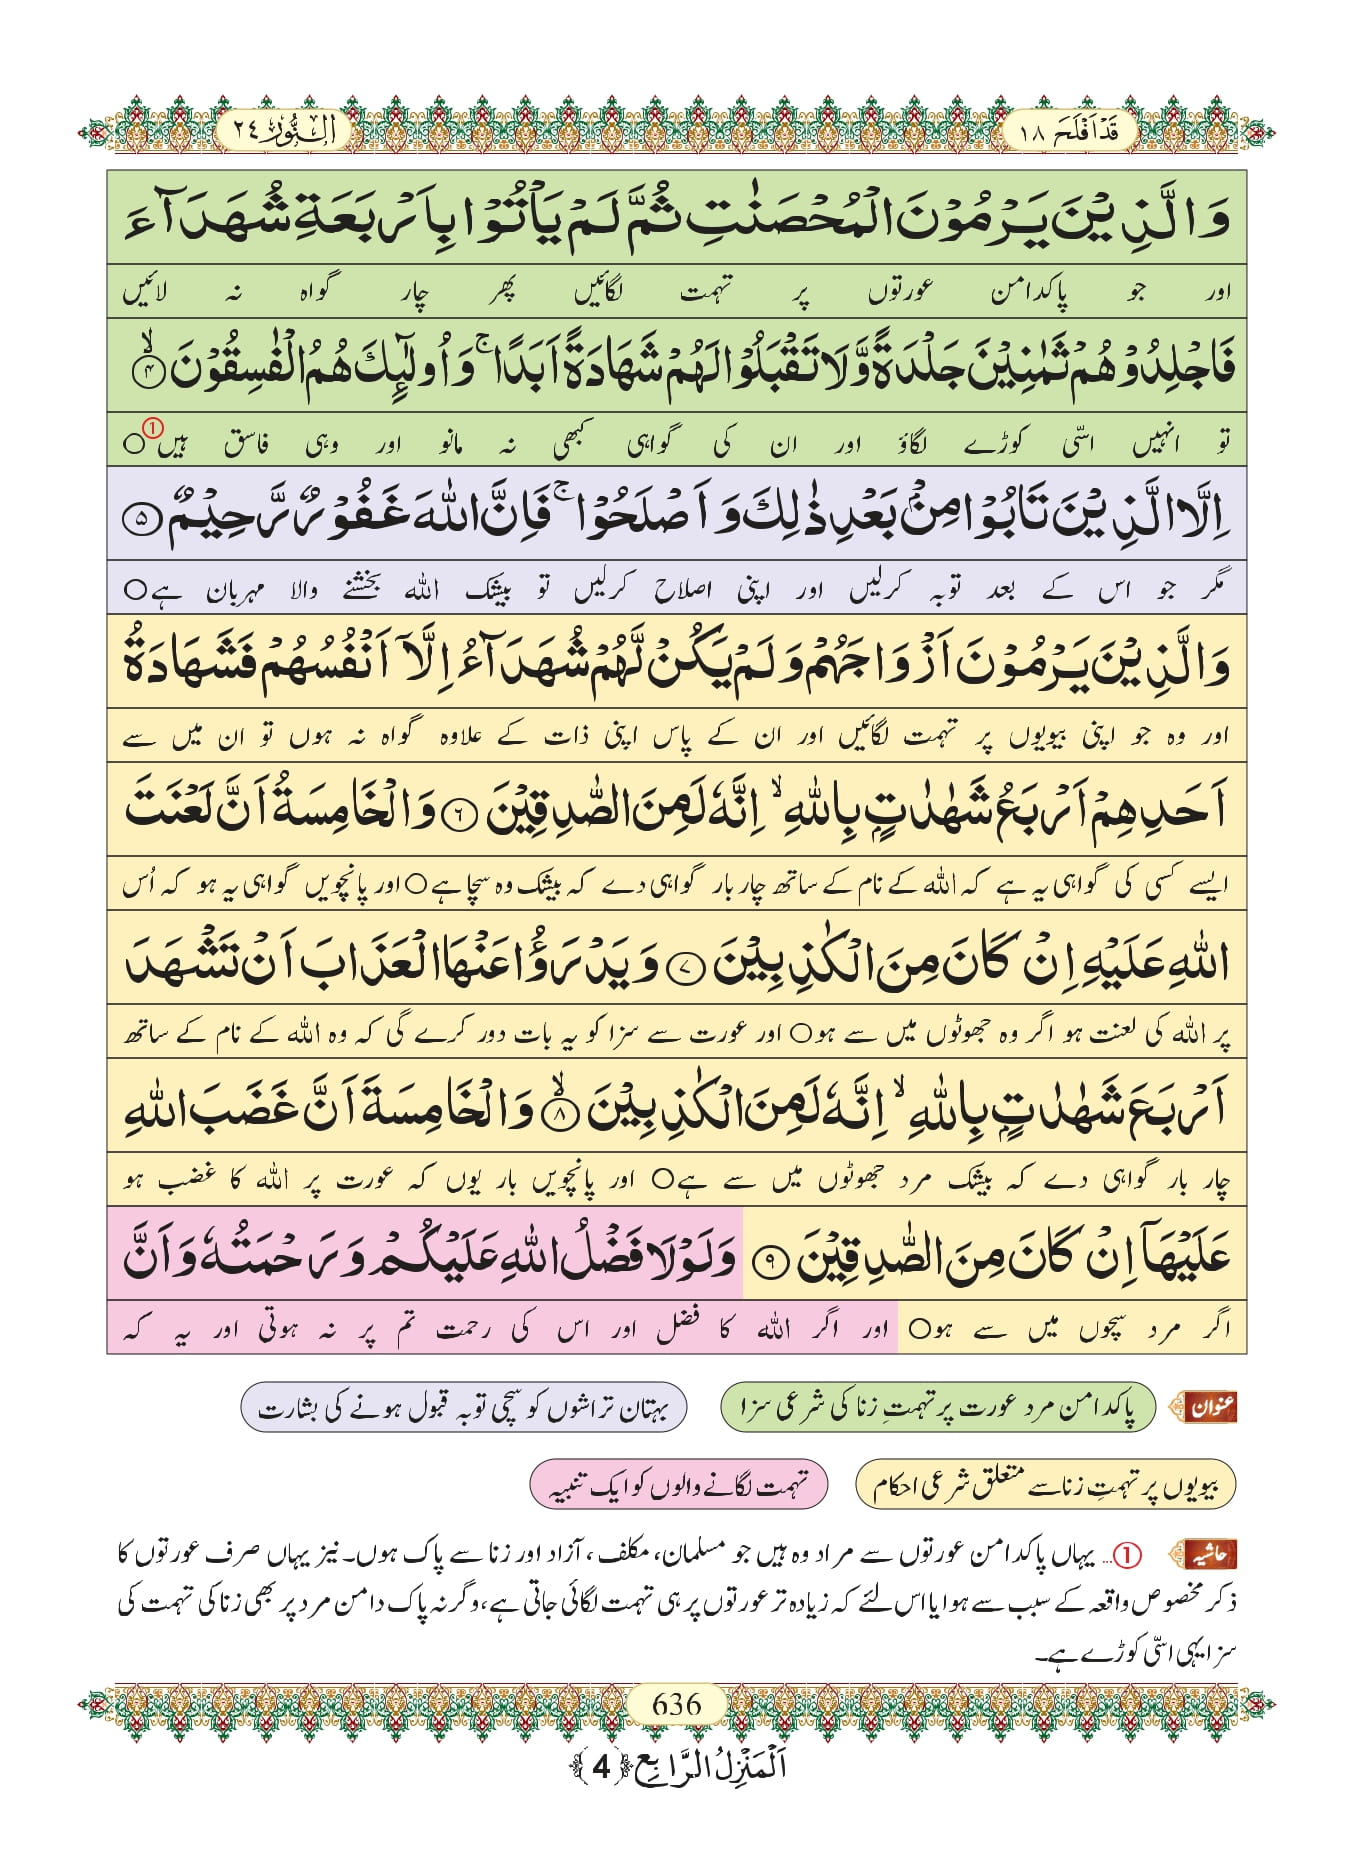 قَدْ اَفْلَحَ ١٨
اَلنُّوْر ٢٤
وَالَّذِيْنَ يَرْمُوْنَ الْمُحْصَنٰتِ ثُمَّ لَمْ يَاْتُوْا بِاَرْبَعَةِ شُهَدَآءَ
اور جو پاکدامن عورتوں پر تہمت لگائیں پھر چار گواہ نہ لائیں
فَاجْلِدُوْهُمْ ثَمٰنِيْنَ جَلْدَةً وَّلَا تَقْبَلُوْا لَهُمْ شَهَادَةً اَبَدًا ۚ وَاُولٰٓئِكَ هُمُ الْفٰسِقُوْنَ ۙ﴿۴﴾
تو انہیں اسّی کوڑے لگاؤ اور ان کی گواہی کبھی نہ مانو اور وہی فاسق ہیں① ○
اِلَّا الَّذِيْنَ تَابُوْا مِنْۢ بَعْدِ ذٰلِكَ وَ اَصْلَحُوْا ۚ فَاِنَّ اللّٰهَ غَفُوْرٌ رَّحِيْمٌ ﴿۵﴾
مگر جو اس کے بعد توبہ کرلیں اور اپنی اصلاح کرلیں تو بیشک اللہ بخشنے والا مہربان ہے ○
وَالَّذِيْنَ يَرْمُوْنَ اَزْوَاجَهُمْ وَلَمْ يَكُنْ لَّهُمْ شُهَدَآءُ اِلَّاۤ اَنْفُسُهُمْ فَشَهَادَةُ
اور وہ جو اپنی بیویوں پر تہمت لگائیں اور ان کے پاس اپنی ذات کے علاوہ گواہ نہ ہوں تو ان میں سے
اَحَدِهِمْ اَرْبَعُ شَهٰدٰتٍۭ بِاللّٰهِ ۙ اِنَّهٗ لَمِنَ الصّٰدِقِيْنَ ﴿۶﴾ وَالْخَامِسَةُ اَنَّ لَعْنَتَ
ایسے کسی کی گواہی یہ ہے کہ اللہ کے نام کے ساتھ چار بار گواہی دے کہ بیشک وہ سچا ہے ○ اور پانچویں گواہی یہ ہو کہ اُس
اللّٰهِ عَلَيْهِ اِنْ كَانَ مِنَ الْكٰذِبِيْنَ ﴿۷﴾ وَيَدْرَؤُا عَنْهَا الْعَذَابَ اَنْ تَشْهَدَ
پر اللہ کی لعنت ہو اگر وہ جھوٹوں میں سے ہو ○ اور عورت سے سزا کو یہ بات دور کرے گی کہ وہ اللہ کے نام کے ساتھ
اَرْبَعَ شَهٰدٰتٍۭ بِاللّٰهِ ۙ اِنَّهٗ لَمِنَ الْكٰذِبِيْنَ ۙ﴿۸﴾ وَالْخَامِسَةَ اَنَّ غَضَبَ اللّٰهِ
چار بار گواہی دے کہ بیشک مرد جھوٹوں میں سے ہے ○ اور پانچویں بار یوں کہ عورت پر اللہ کا غضب ہو
عَلَيْهَاۤ اِنْ كَانَ مِنَ الصّٰدِقِيْنَ ﴿۹﴾ وَلَوْلَا فَضْلُ اللّٰهِ عَلَيْكُمْ وَرَحْمَتُهٗ وَاَنَّ
اگر مرد سچوں میں سے ہو ○ اور اگر اللہ کا فضل اور اس کی رحمت تم پر نہ ہوتی اور یہ کہ
عنوان پاکدامن مرد عورت پر تہمتِ زنا کی شرعی سزا بہتان تراشوں کو سچی توبہ قبول ہونے کی بشارت
بیویوں پر تہمتِ زنا سے متعلق شرعی احکام تہمت لگانے والوں کو ایک تنبیہ
حاشیہ ①... یہاں پاکدامن عورتوں سے مراد وہ ہیں جو مسلمان، مکلف، آزاد اور زنا سے پاک ہوں۔ نیز یہاں صرف عورتوں کا
ذکر مخصوص واقعہ کے سبب سے ہوا یا اس لئے کہ زیادہ تر عورتوں پر ہی تہمت لگائی جاتی ہے، وگرنہ پاک دامن مرد پر بھی زنا کی تہمت کی
سزا یہی اسّی کوڑے ہے۔
636
اَلْمَنْزِلُ الرَّابِع ﴿4﴾